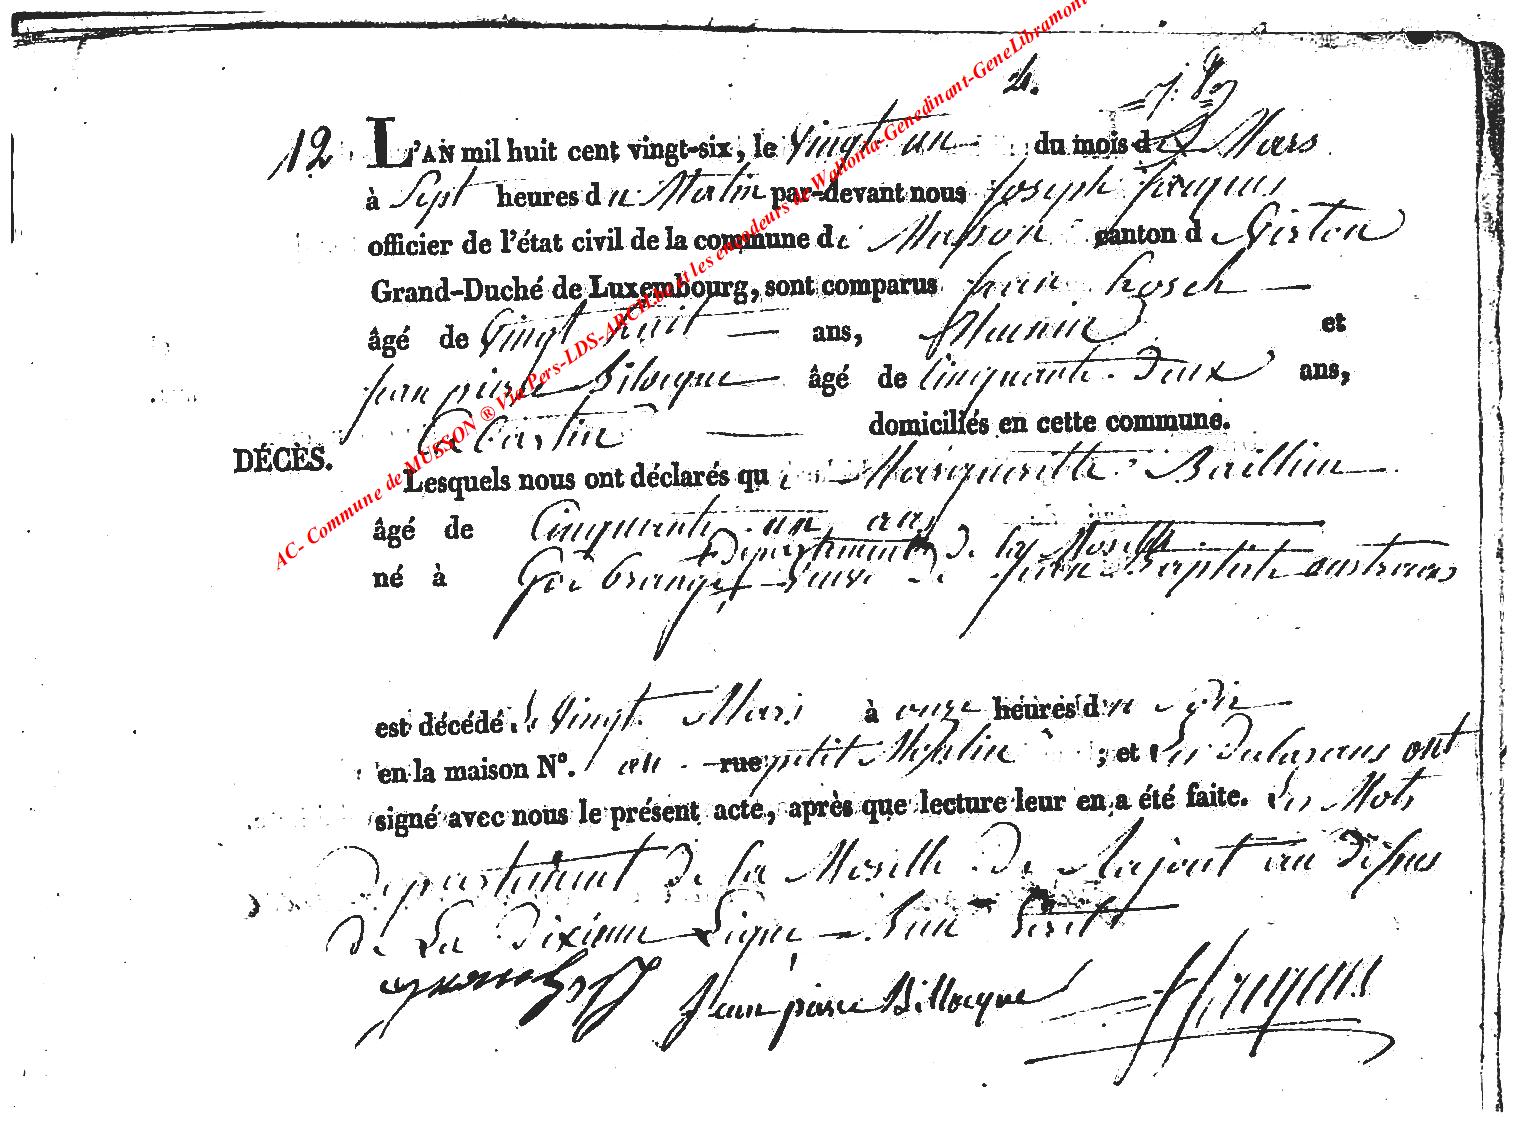 4.
12 L'AN mil huit cent vingt-six, le Vingt un du mois de Mars
à Sept heures du Matin par-devant nous Joseph Jacques
officier de l'état civil de la commune de Musson canton d Virton
Grand-Duché de Luxembourg, sont comparus Jean Rosch
âgé de Vingt huit ans, Meunier et
Jean pierre Bilocque âgé de Cinquante Deux ans,
domiciliés en cette commune.
DÉCÈS.
Lesquels nous ont déclarés que Margueritte Baillieu
âgé de Cinquante un ans
Departement de la Moselle
né à Gorbrange Veuve de Jean Baptiste
est décédé le Vingt Mars à onze heures du Soir
en la maison N°. au rue petit Moulin ; et les declarans ont
signé avec nous le présent acte, après que lecture leur en a été faite. Les Mots
Departement de la Moselle De Rajout au Dessus
De La Dixieme Ligne
Jean piere Billocque
AC- Commune de MUSSON ® Via Pers-LDS-ARCH.be et les encodeurs de Wallonia-Genedinant-GeneLibramont